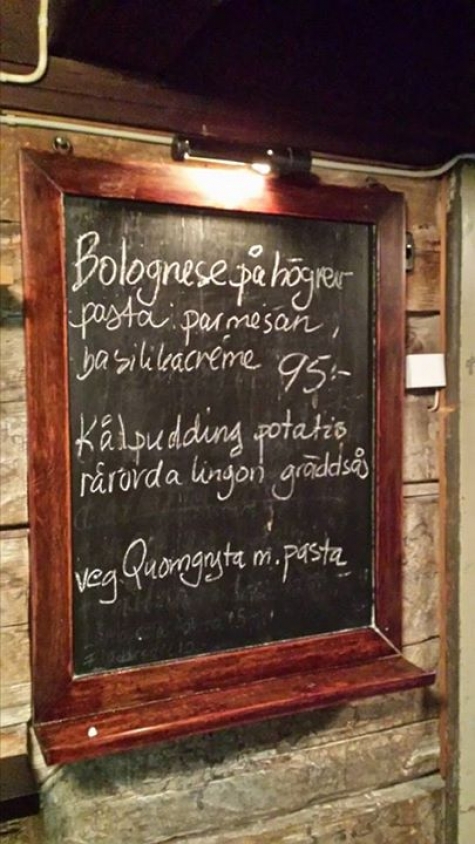 Bolognese på högrev
pasta parmesan,
basilikacréme 95:-
Kålpudding potatis
rårörda lingon gräddsås
veg Quorngryta m. pasta